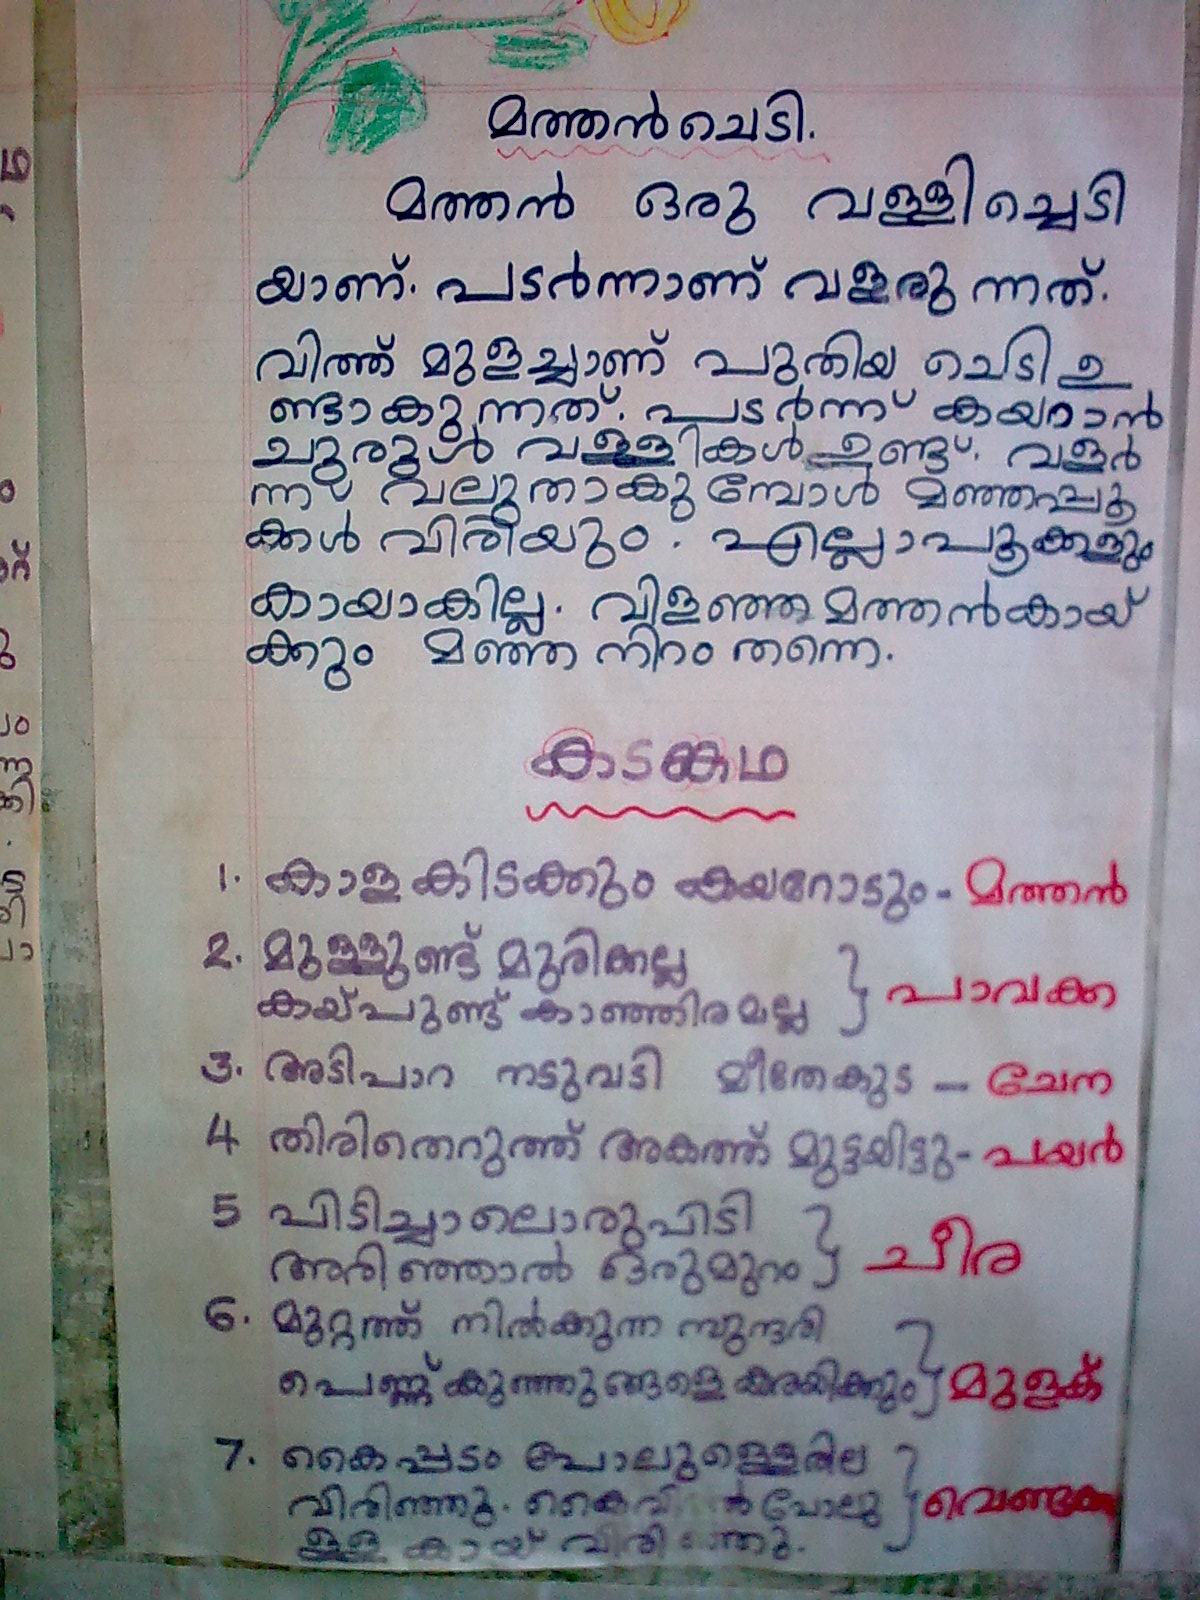 മത്തൻചെടി.
മത്തൻ ഒരു വള്ളിച്ചെടി
യാണ്. പടർന്നാണ് വളരുന്നത്.
വിത്ത് മുളച്ചാണ് പുതിയ ചെടി ഉ
ണ്ടാകുന്നത്. പടർന്ന് കയറാൻ
ചുരുൾ വള്ളികൾ ഉണ്ട്. വളർ
ന്ന് വലുതാകുമ്പോൾ മഞ്ഞപ്പൂ
ക്കൾ വിരിയും. എല്ലാപൂക്കളും
കായാകില്ല. വിളഞ്ഞ മത്തൻകായ്
ക്കും മഞ്ഞ നിറം തന്നെ.
കടങ്കഥ
1. കാള കിടക്കും കയറോടും - മത്തൻ
2. മുള്ളുണ്ട് മുരിക്കല്ല
കയ്പുണ്ട് കാഞ്ഞിരമല്ല } പാവക്ക
3. അടിപാറ നടുവടി മീതേകുട - ചേന
4 തിരിതെറുത്ത് അകത്ത് മുട്ടയിട്ടു - പയർ
5 പിടിച്ചാലൊരുപിടി
അരിഞ്ഞാൽ ഒരുമുറം } ചീര
6. മുറ്റത്ത് നിൽക്കുന്ന സുന്ദരി
പെണ്ണ് കുഞ്ഞുങ്ങളെ കരയിക്കും } മുളക്
7. കൈപ്പടം പോലുള്ളൊരില
വിരിഞ്ഞു. പോലു } വെണ്ടക്ക
ള്ള കായ് വിരിഞ്ഞു.